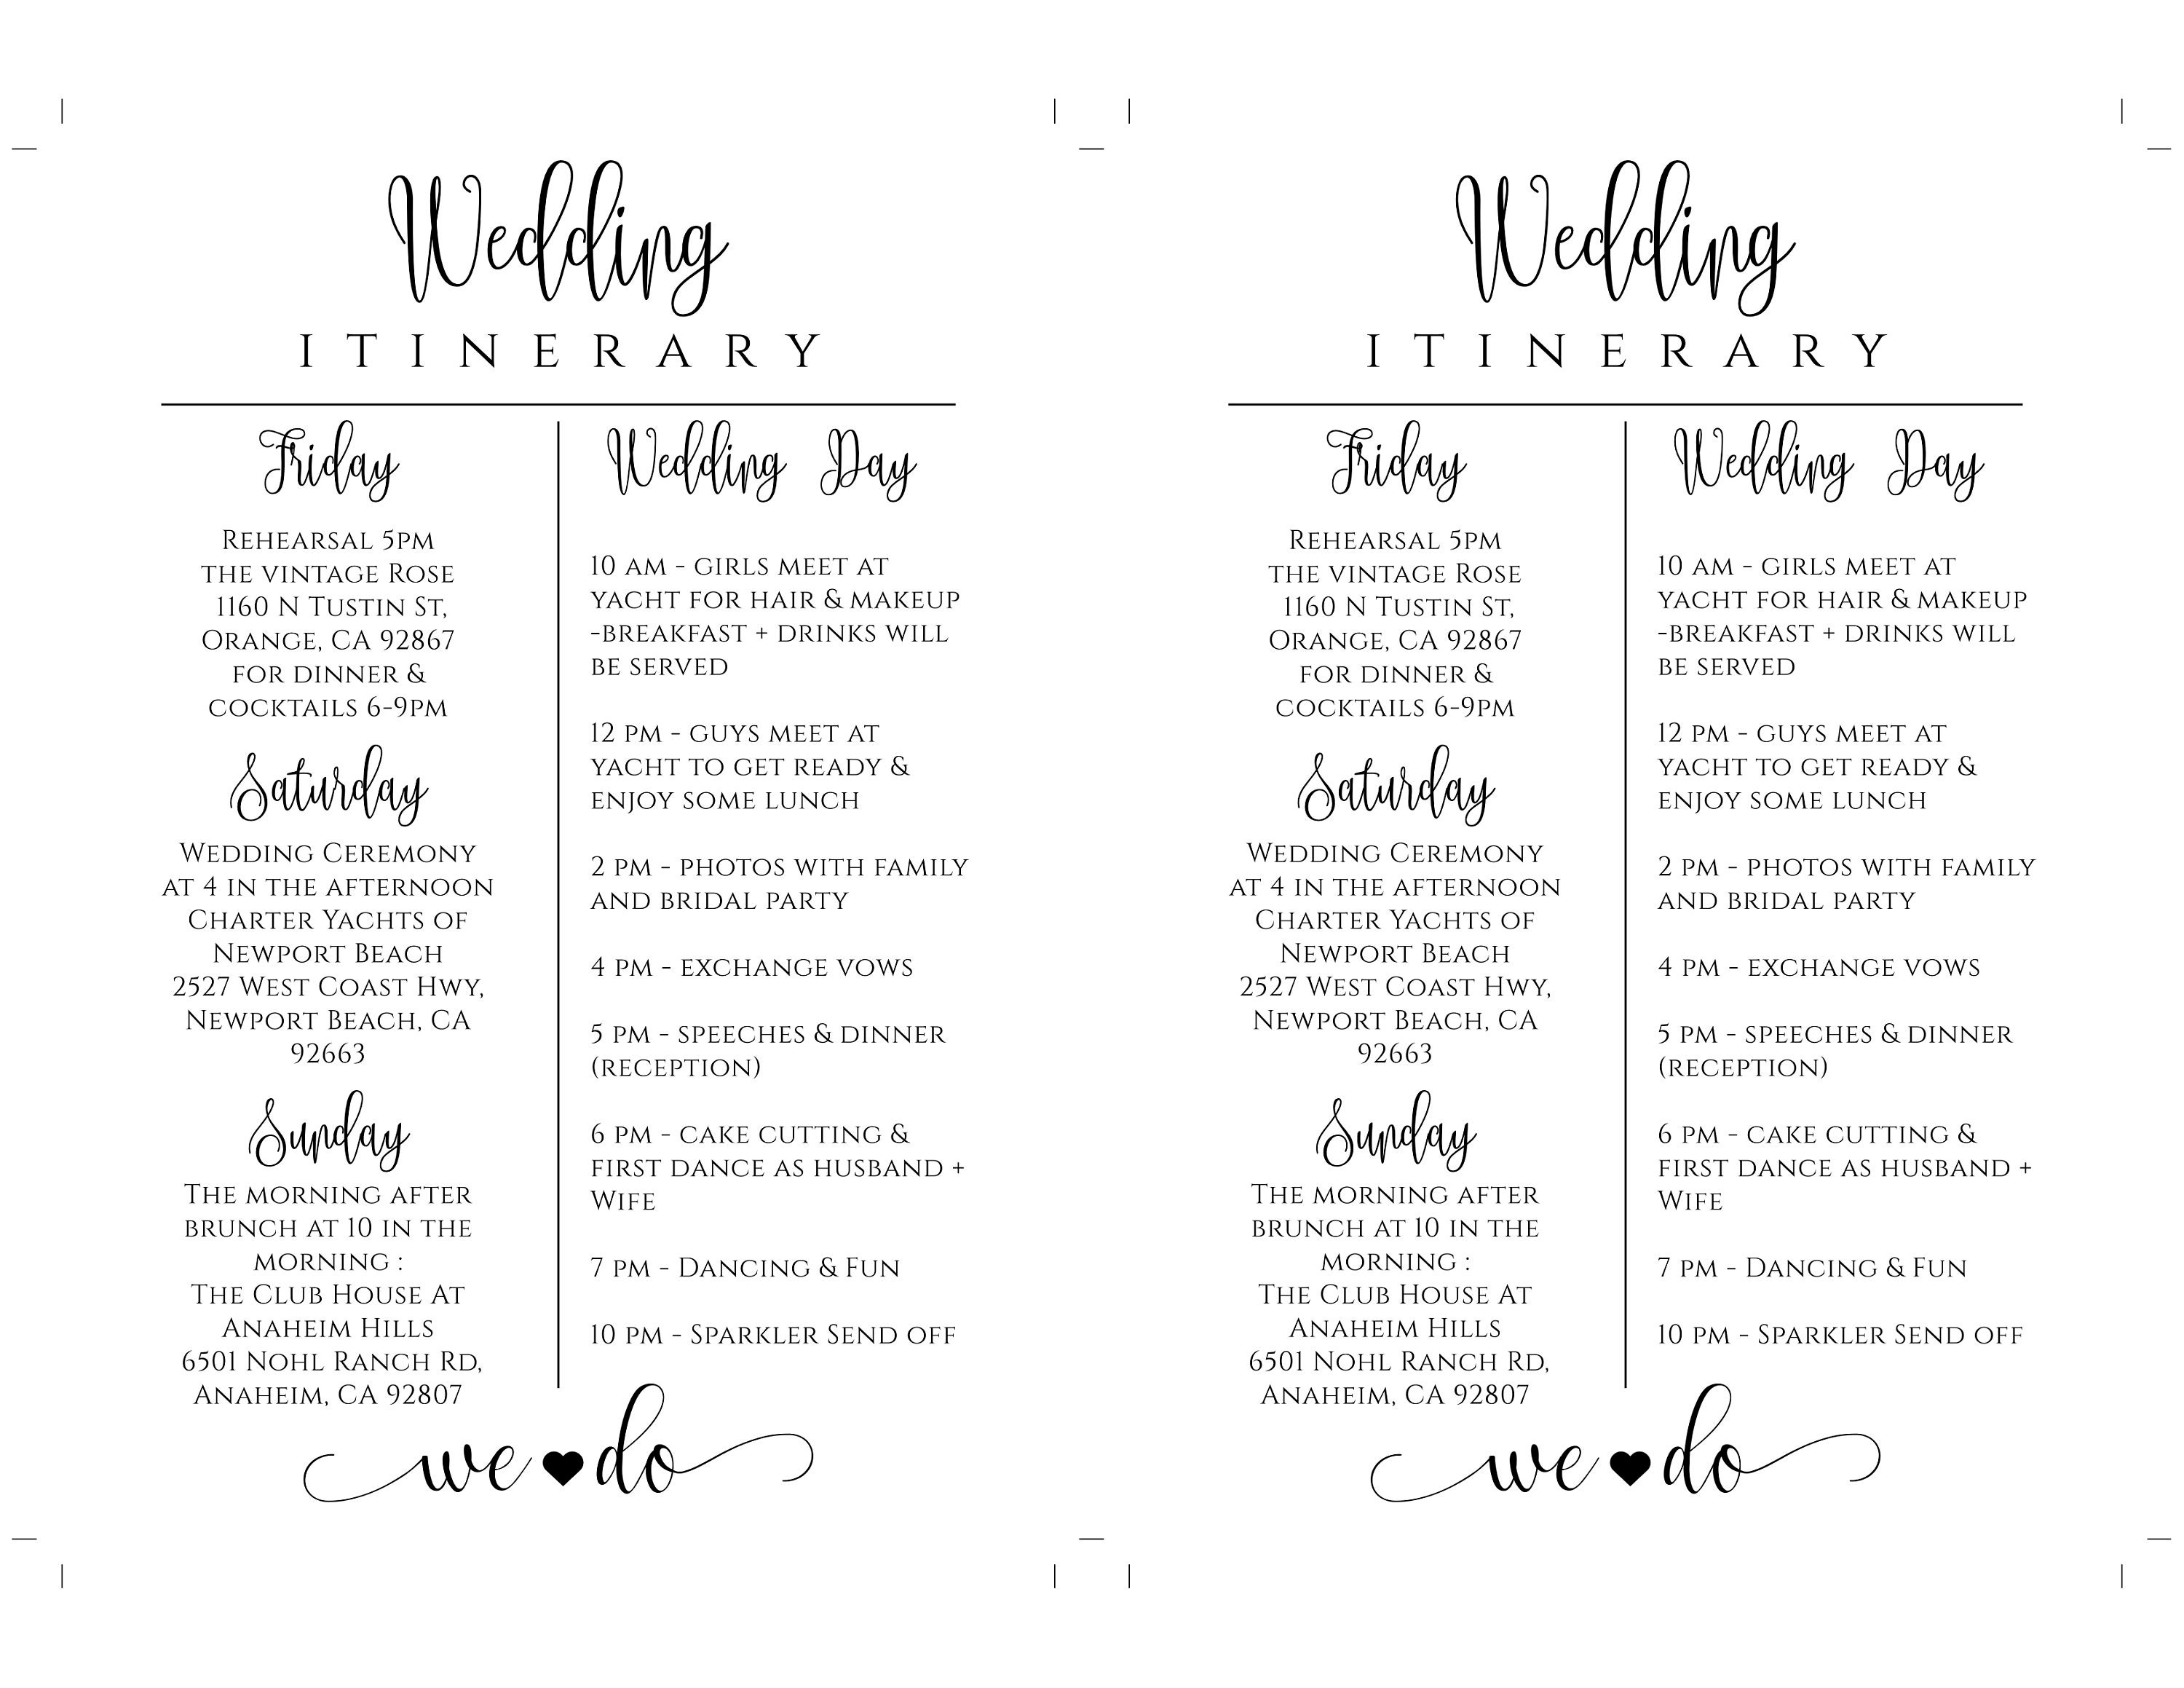 Wedding
ITINERARY
Friday
Rehearsal 5pm
the vintage Rose
1160 N Tustin St,
Orange, CA 92867
for dinner &
cocktails 6-9pm
Saturday
Wedding Ceremony
at 4 in the afternoon
Charter Yachts of
Newport Beach
2527 West Coast Hwy,
Newport Beach, CA
92663
Sunday
The morning after
brunch at 10 in the
morning :
The Club House At
Anaheim Hills
6501 Nohl Ranch Rd,
Anaheim, CA 92807
Wedding Day
10 am - girls meet at
yacht for hair & makeup
-breakfast + drinks will
be served
12 pm - guys meet at
yacht to get ready &
enjoy some lunch
2 pm - photos with family
and bridal party
4 pm - exchange vows
5 pm - speeches & dinner
(reception)
6 pm - cake cutting &
first dance as husband +
Wife
7 pm - Dancing & Fun
10 pm - Sparkler Send off
we do
Wedding
ITINERARY
Friday
Rehearsal 5pm
the vintage Rose
1160 N Tustin St,
Orange, CA 92867
for dinner &
cocktails 6-9pm
Saturday
Wedding Ceremony
at 4 in the afternoon
Charter Yachts of
Newport Beach
2527 West Coast Hwy,
Newport Beach, CA
92663
Sunday
The morning after
brunch at 10 in the
morning :
The Club House At
Anaheim Hills
6501 Nohl Ranch Rd,
Anaheim, CA 92807
Wedding Day
10 am - girls meet at
yacht for hair & makeup
-breakfast + drinks will
be served
12 pm - guys meet at
yacht to get ready &
enjoy some lunch
2 pm - photos with family
and bridal party
4 pm - exchange vows
5 pm - speeches & dinner
(reception)
6 pm - cake cutting &
first dance as husband +
Wife
7 pm - Dancing & Fun
10 pm - Sparkler Send off
we do